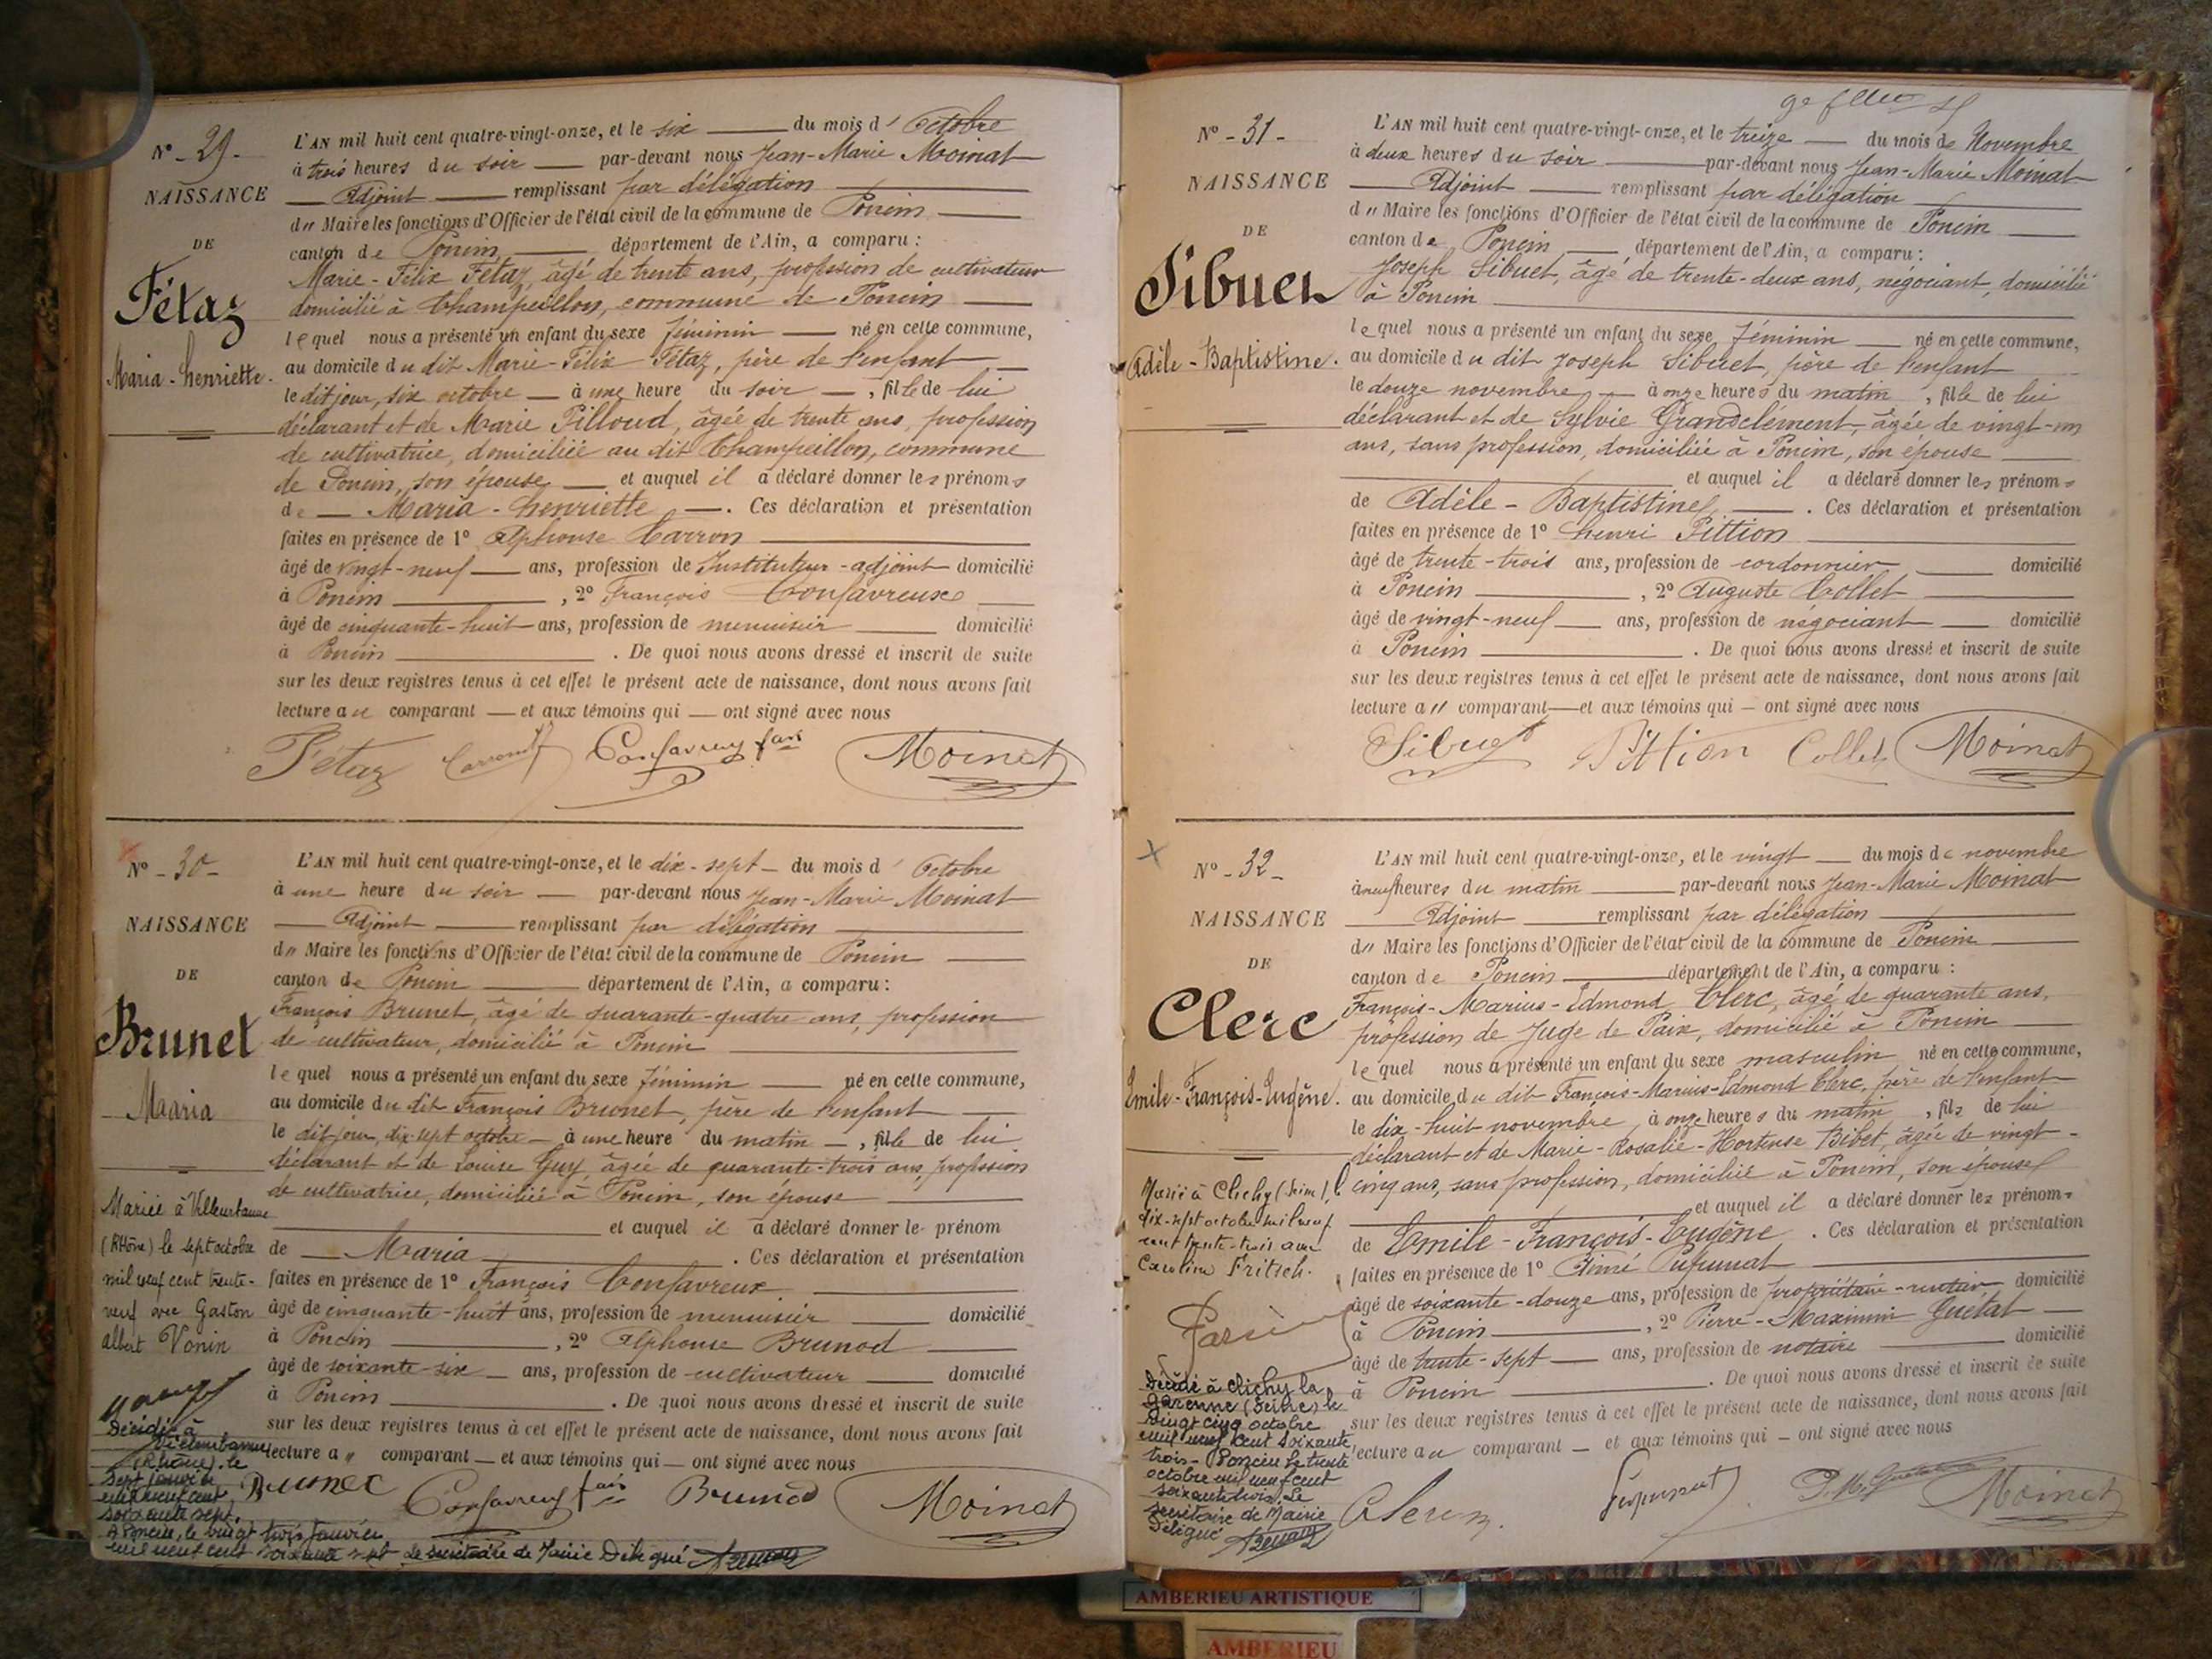 N° - 29 -
NAISSANCE
DE
Fétaz
Maria - Henriette.
L'AN mil huit cent quatre-vingt-onze, et le six du mois d' Octobre
à trois heures du soir par-devant nous Jean-Marie Moinat
Adjoint remplissant par délégation
d" Maire les fonctions d'Officier de l'état civil de la commune de Poncin
canton de Poncin département de l'Ain, a comparu :
Marie-Félix Fétaz, âgé de trente ans, profession de cultivateur
domicilié à Champeillon, commune de Poncin
lequel nous a présenté un enfant du sexe féminin né en cette commune,
au domicile du dit Marie-Félix Fétaz, père de l'enfant
le dit jour, six octobre à une heure du soir , fille de lui
déclarant et de Marie Pilloud, âgée de trente ans, profession
de cultivatrice, domiciliée au dit Champeillon, commune
de Poncin, son épouse et auquel il a déclaré donner les prénoms
de Maria-Henriette . Ces déclaration et présentation
faites en présence de 1° Alphonse Carron
âgé de vingt-neuf ans, profession de Instituteur-adjoint domicilié
à Poncin , 2° François Confavreux
âgé de cinquante-huit ans, profession de menuisier domicilié
à Poncin . De quoi nous avons dressé et inscrit de suite
sur les deux registres tenus à cet effet le présent acte de naissance, dont nous avons fait
lecture au comparant et aux témoins qui ont signé avec nous
Fétaz Carron Confavreux Moinat
N° - 30 -
NAISSANCE
DE
Brunet
Maaria
Mariée à Villeurbanne
(Rhône) le sept octobre
mil neuf cent trente-
neuf avec Gaston
albert Vonin
Décédée à
Villeurbanne
(Rhône) le
sept janvier
mil neuf cent
soixante sept.
A Poncin, le vingt trois Janvier
mil neuf cent soixante sept Le secrétaire de Mairie Délégué
L'AN mil huit cent quatre-vingt-onze, et le dix-sept du mois d' Octobre
à une heure du soir par-devant nous Jean-Marie Moinat
Adjoint remplissant par délégation
d" Maire les fonctions d'Officier de l'état civil de la commune de Poncin
canton de Poncin département de l'Ain, a comparu :
François Brunet, âgé de quarante-quatre ans, profession
de cultivateur, domicilié à Poncin
lequel nous a présenté un enfant du sexe féminin né en cette commune,
au domicile du dit François Brunet, père de l'enfant
le dit jour, dix-sept octobre à une heure du matin , fille de lui
déclarant et de Louise Guy âgée de quarante-trois ans, profession
de cultivatrice, domiciliée à Poncin, son épouse
et auquel il a déclaré donner le prénom
de Maria . Ces déclaration et présentation
faites en présence de 1° François Confavreux
âgé de cinquante-huit ans, profession de menuisier domicilié
à Poncin , 2° Alphonse Brunod
âgé de soixante-six ans, profession de cultivateur domicilié
à Poncin . De quoi nous avons dressé et inscrit de suite
sur les deux registres tenus à cet effet le présent acte de naissance, dont nous avons fait
lecture a" comparant et aux témoins qui ont signé avec nous
Brunet Confavreux Brunod Moinat
N° - 31 -
NAISSANCE
DE
Sibuet
Adèle - Baptistine.
L'AN mil huit cent quatre-vingt-onze, et le treize du mois de Novembre
à deux heures du soir par-devant nous Jean-Marie Moinat
Adjoint remplissant par délégation
d" Maire les fonctions d'Officier de l'état civil de la commune de Poncin
canton de Poncin département de l'Ain, a comparu :
Joseph Sibuet, âgé de trente-deux ans, négociant, domicilié
à Poncin
lequel nous a présenté un enfant du sexe féminin né en cette commune,
au domicile du dit Joseph Sibuet, père de l'enfant
le douze novembre à onze heures du matin , fille de lui
déclarant et de Sylvie Grandclément, âgée de vingt-un
ans, sans profession, domiciliée à Poncin, son épouse
et auquel il a déclaré donner les prénoms
de Adèle-Baptistine . Ces déclaration et présentation
faites en présence de 1° Henri Pittion
âgé de trente-trois ans, profession de cordonnier domicilié
à Poncin , 2° Auguste Collet
âgé de vingt-neuf ans, profession de négociant domicilié
à Poncin . De quoi nous avons dressé et inscrit de suite
sur les deux registres tenus à cet effet le présent acte de naissance, dont nous avons fait
lecture a" comparant et aux témoins qui ont signé avec nous
Sibuet Pittion Collet Moinat
N° - 32 -
NAISSANCE
DE
Clerc
Emile-François-Eugène.
Marié à Clichy (Seine), le
dix-sept octobre mil neuf
cent trente-trois avec
Caroline Fritsch.
Décédé à Clichy la
Garenne (Seine) le
vingt cinq octobre
mil neuf cent soixante
trois - Poncin le trente
octobre mil neuf cent
soixante trois. Le
secrétaire de Mairie
Délégué
L'AN mil huit cent quatre-vingt-onze, et le vingt du mois de novembre
à neuf heures du matin par-devant nous Jean-Marie Moinat
Adjoint remplissant par délégation
d" Maire les fonctions d'Officier de l'état civil de la commune de Poncin
canton de Poncin département de l'Ain, a comparu :
François-Marius-Edmond Clerc, âgé de quarante ans,
profession de Juge de Paix, domicilié à Poncin
lequel nous a présenté un enfant du sexe masculin né en cette commune,
au domicile du dit François-Marius-Edmond Clerc, père de l'enfant
le dix-huit novembre, à onze heures du matin , fils de lui
déclarant et de Marie-Rosalie-Hortense Bibet, âgée de vingt-
cinq ans, sans profession, domiciliée à Poncin, son épouse
et auquel il a déclaré donner les prénoms
de Emile-François-Eugène . Ces déclaration et présentation
faites en présence de 1° Aimé Pupunat
âgé de soixante-douze ans, profession de propriétaire-rentier domicilié
à Poncin , 2° Pierre-Maximin Guétat
âgé de trente-sept ans, profession de notaire domicilié
à Poncin . De quoi nous avons dressé et inscrit de suite
sur les deux registres tenus à cet effet le présent acte de naissance, dont nous avons fait
lecture au comparant et aux témoins qui ont signé avec nous
Clerc Pupunat P. M. Guétat Moinat
AMBERIEU ARTISTIQUE
AMBERIEU